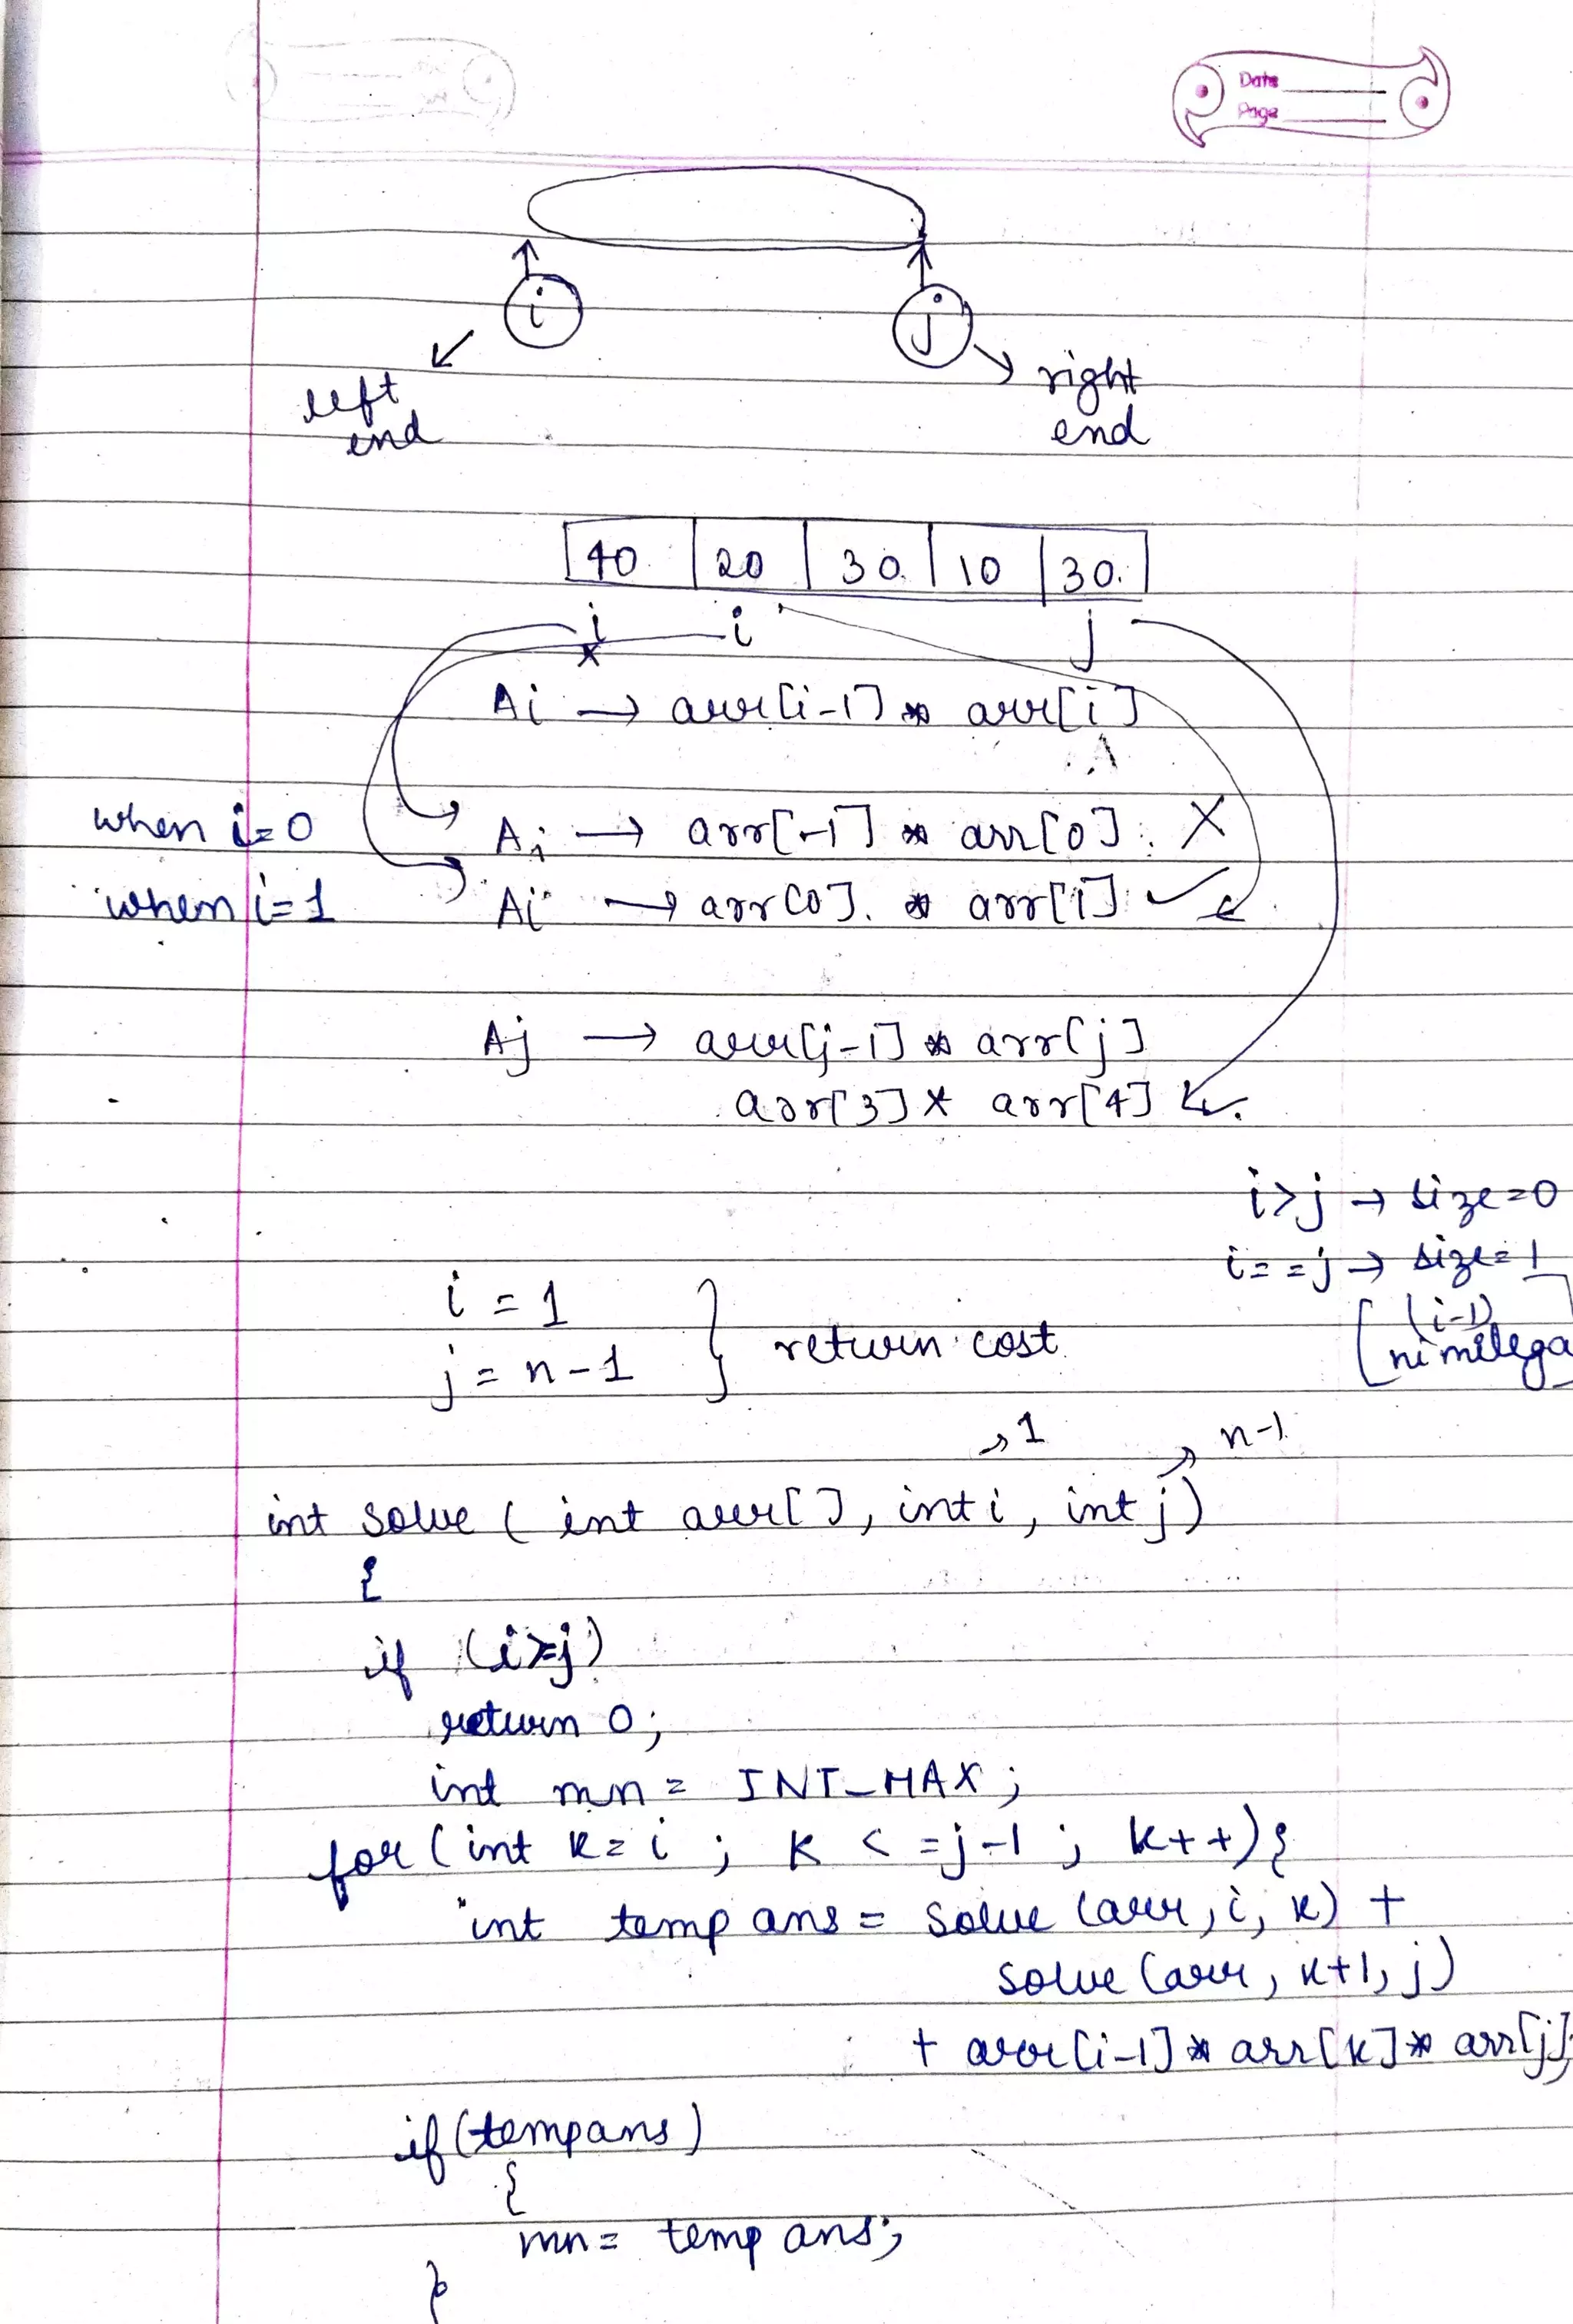 Date
Page
i
j
left
end
right
end
40 20 30 10 30
i i j
x
Ai → arr[i-1] * arr[i]
when i=0 Ai → arr[-1] * arr[0] X
when i=1 Ai → arr[0] * arr[1] ✓
Aj → arr[j-1] * arr[j]
arr[3] * arr[4]
i>j → size=0
i==j → size=1
(i-1)
ni milega
i = 1
j = n-1
} return cost
→ 1
→ n-1
int solve ( int arr[], int i, int j)
{
if (i>=j)
return 0;
int mn = INT_MAX;
for (int k=i ; k <=j-1 ; k++){
int temp ans = solve (arr, i, k) +
solve (arr, k+1, j)
+ arr[i-1] * arr[k] * arr[j];
if (tempans)
{
mn = temp ans;
}